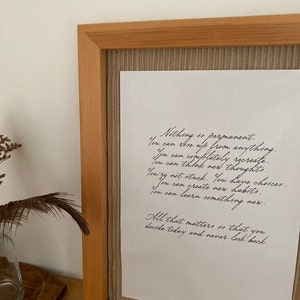 Nothing is permanent.
You can rise up from anything.
You can completely recreate.
You can think new thoughts.
You're not stuck. You have choices.
You can create new habits.
You can learn something new.
All that matters is that you
decide today and never look back.